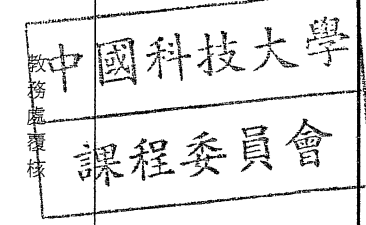 教務處覆核
中國科技大學
課程委員會